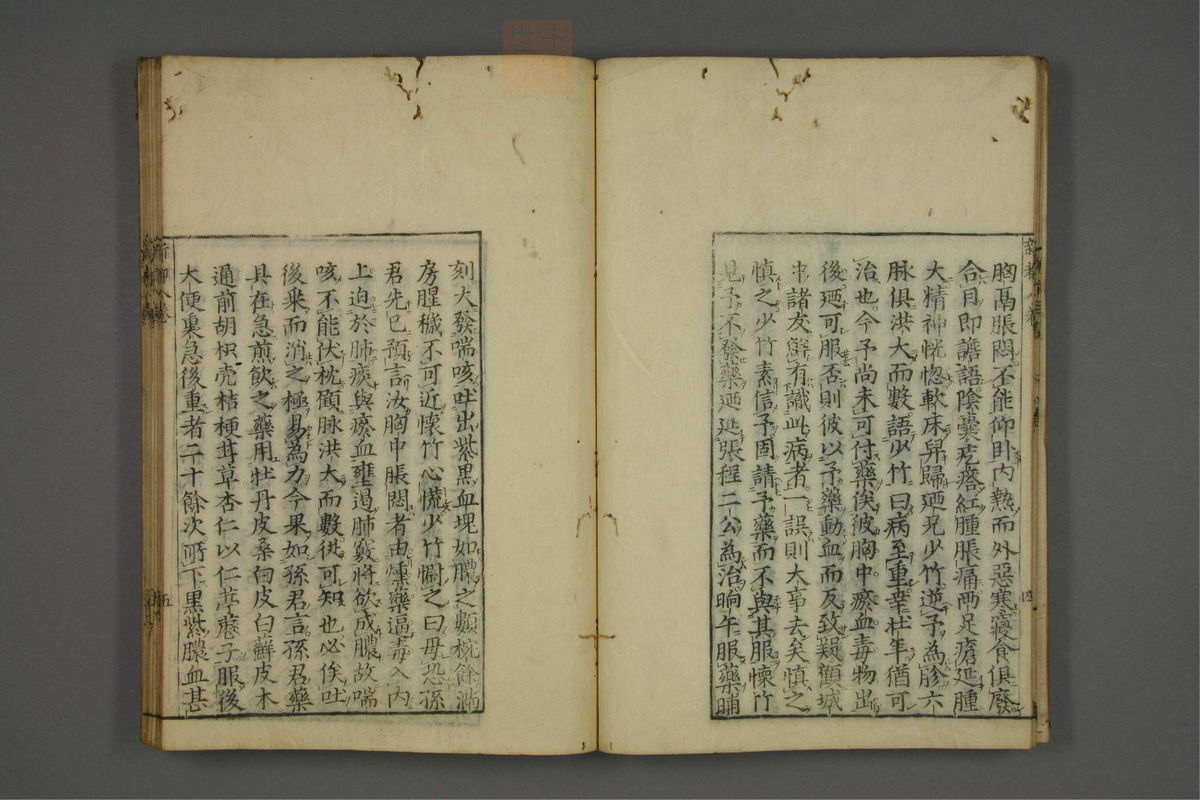 胸膈脹悶不能仰卧内熱而外惡寒寢食俱廢
合目即譫語陰囊疙瘩紅腫脹痛兩足瘡延腫
大精神恍惚軟床舁歸廼兄少竹逆予為診六
脉俱洪大而數語少竹曰病至重幸壮年猶可
治也今予尚未可付藥俟彼胸中瘀血毒物出
後廼可服否則彼以予藥動血而反致疑顧城
中諸友鮮有識此病者一誤則大事去矣慎之
慎之少竹素信予固請予藥而不與其服懷竹
見予不發藥廼延張程二公為治晌午服藥晡
刻大發喘咳吐出紫黑血塊如膿之類椀餘滿
房腥穢不可近懷竹心慌少竹慰之曰毋恐孫
君先已預言汝胸中脹悶者由燻藥逼毒入内
上迫於肺痰與瘀血壅遏肺竅將欲成膿故喘
咳不能伏枕顧脉洪大而數從可知也必俟吐
後乘而消之極易為力今果如孫君言孫君藥
具在急煎飲之藥用牡丹皮桑白皮白蘚皮木
通前胡枳壳桔梗甘草杏仁以仁葶藶子服後
大便裏急後重者二十餘次所下黑紫膿血甚
四
五